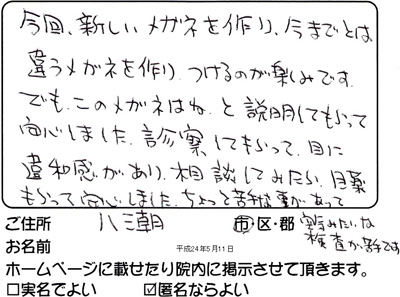 今回、新しいメガネを作り、今までとは
違うメガネを作り、つけるのが楽しみです。
でも、このメガネはね、と説明してもらって
安心しました。診察してもらって、目に
違和感があり、相談してみたり、目薬
もらって安心しました。ちょっと苦手な事があって
ご住所 八潮 市・区・郡 みたいな
お名前 平成24年5月11日 検査が苦手です
ホームページに載せたり院内に掲示させて頂きます。
□実名でよい ☑匿名ならよい